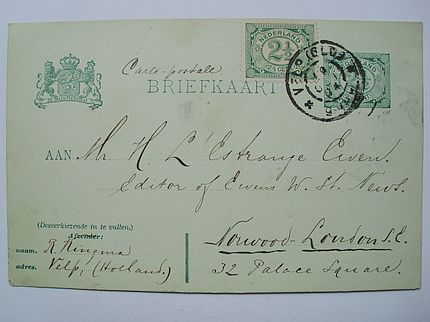 NEDERLAND
2½
CENT
Carte-postale.
BRIEFKAART
VELP (GLD)
AAN Mr. H L'Estrange Ewen.
Editor of Ewens W. St. News.
Norwood-London S.E.
32 Palace Square.
(Desverkiezende in te vullen.)
Afzender:
naam. R. Ringma
adres. Velp, (Holland.)